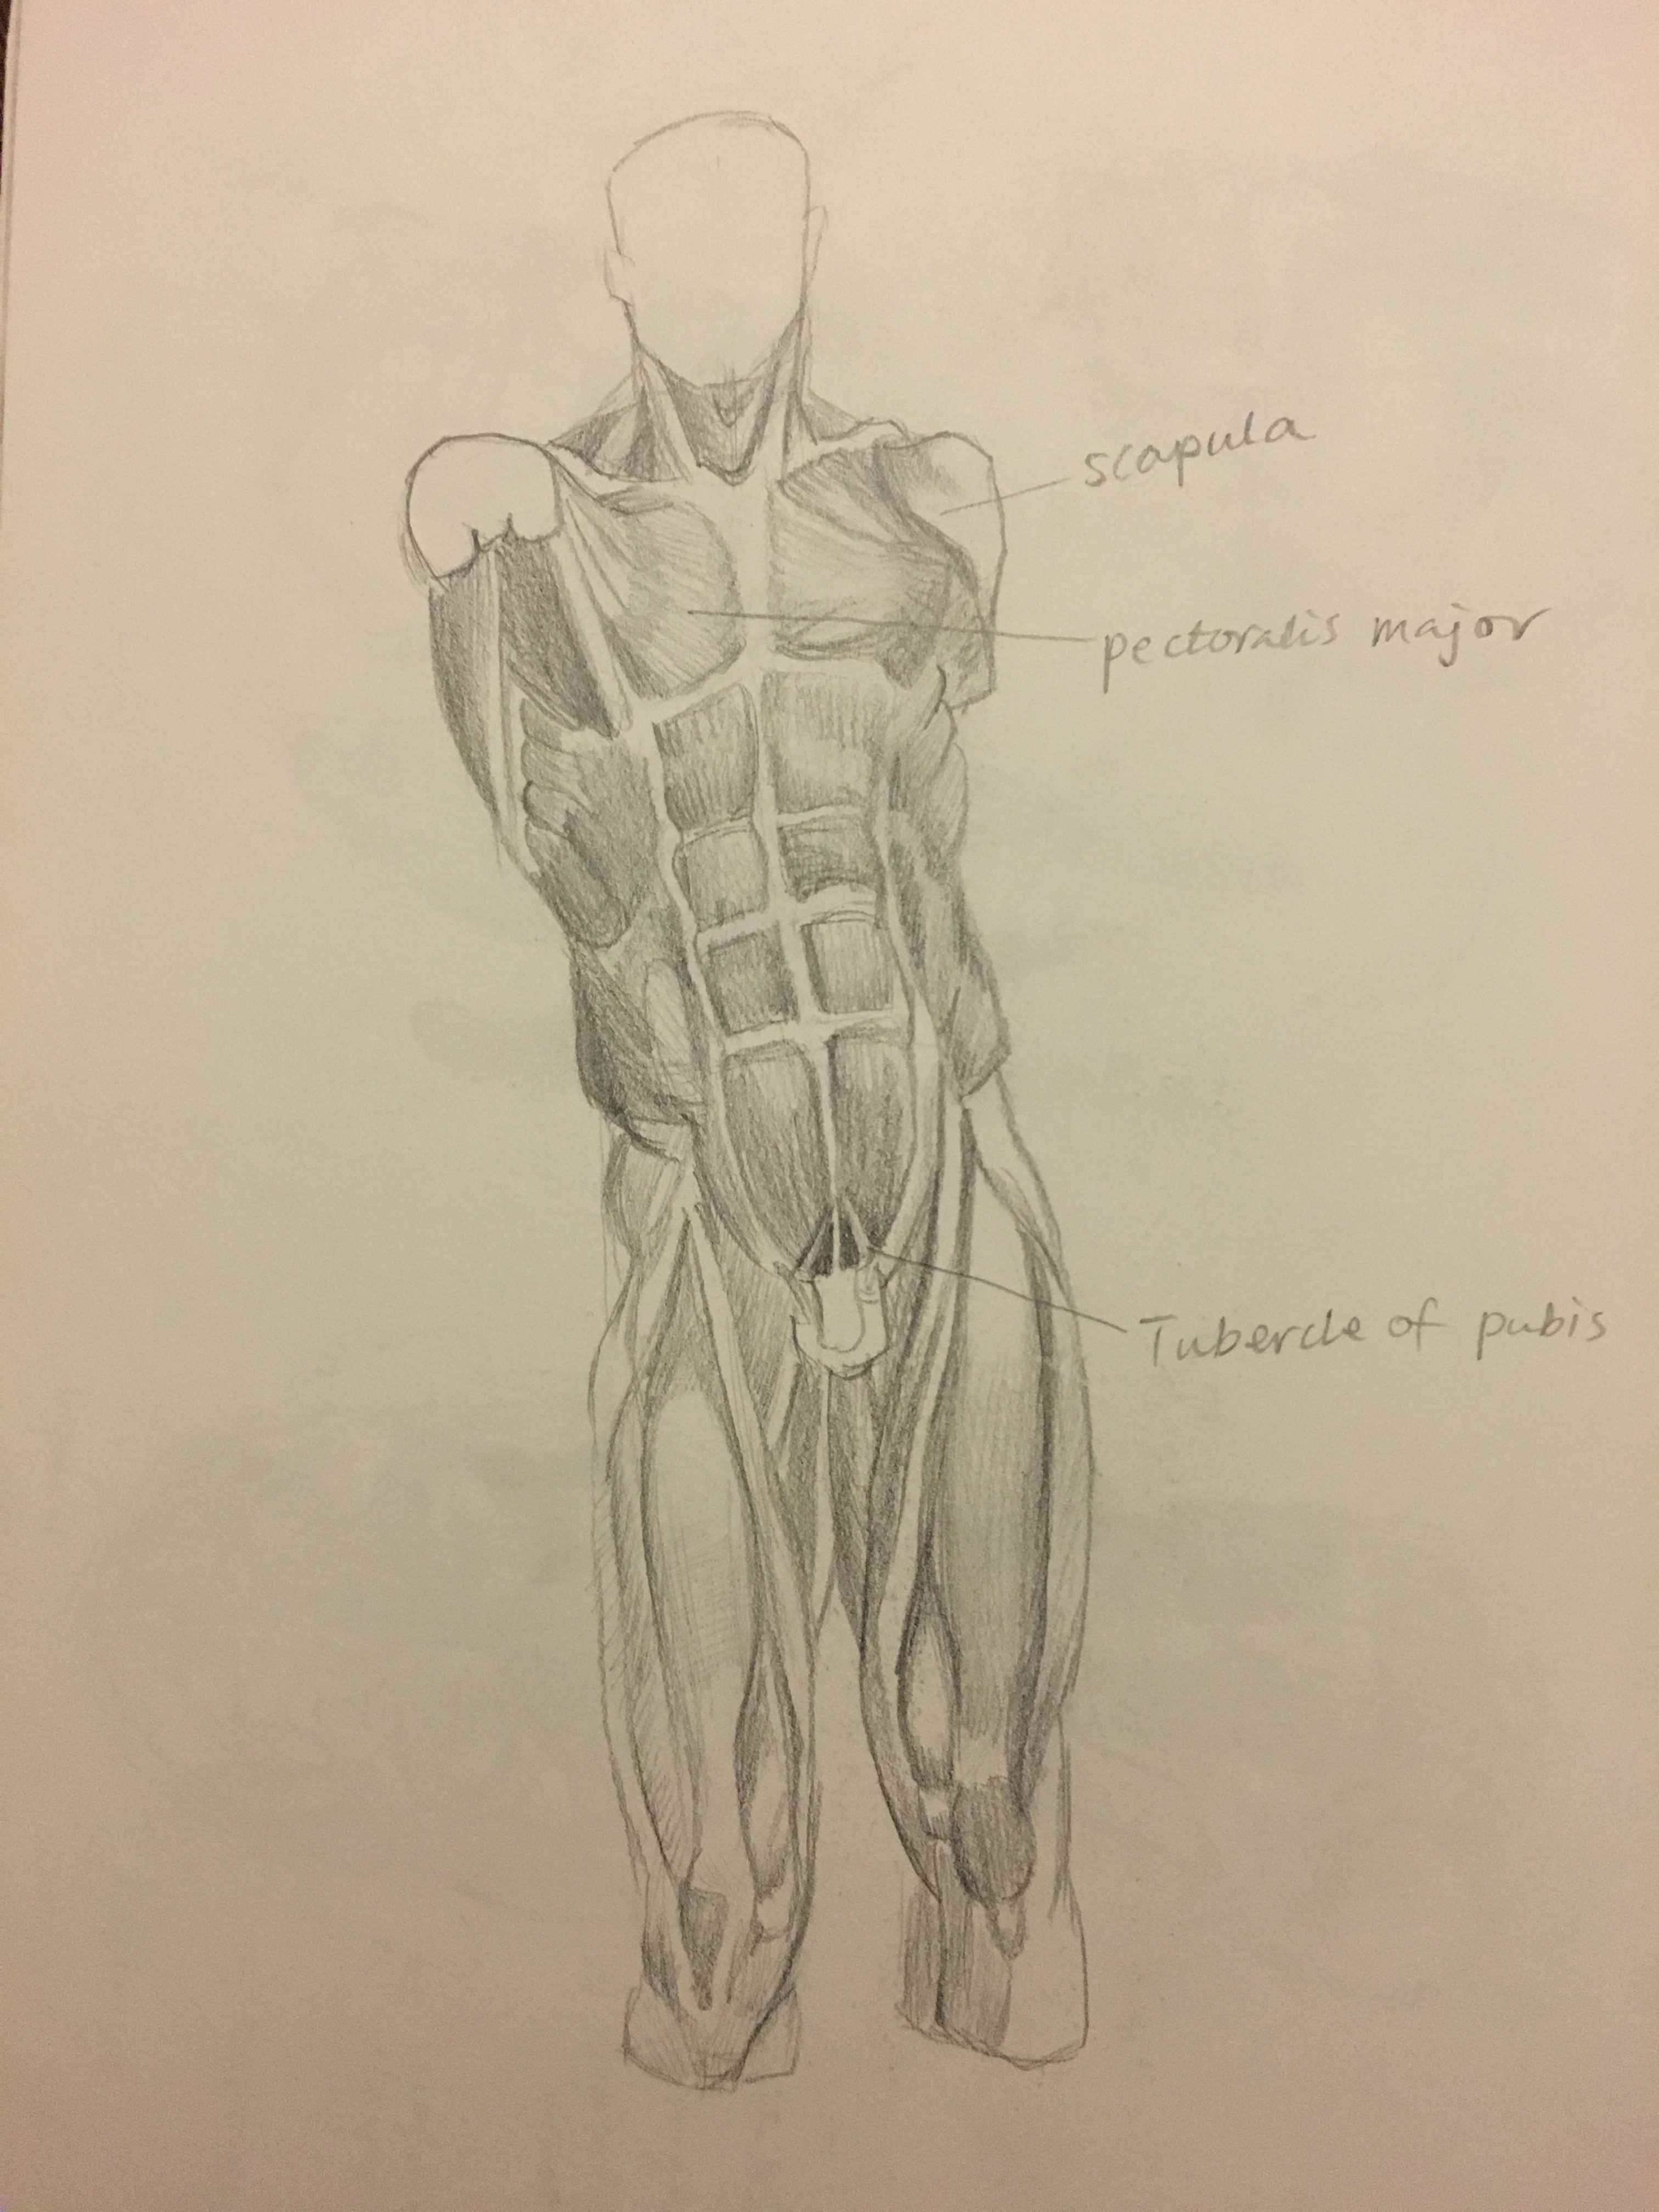 scapula
pectoralis major
Tubercle of pubis